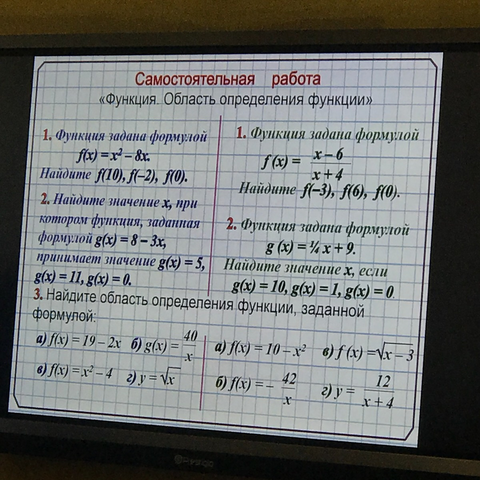 Самостоятельная работа
«Функция. Область определения функции»
1. Функция задана формулой
f(x) = x² – 8x.
Найдите f(10), f(–2), f(0).
2. Найдите значение x, при
котором функция, заданная
формулой g(x) = 8 – 3x,
принимает значение g(x) = 5,
g(x) = 11, g(x) = 0.
1. Функция задана формулой
f(x) = (x – 6)/(x + 4)
Найдите f(–3), f(6), f(0).
2. Функция задана формулой
g (x) = ¼ x + 9.
Найдите значение x, если
g(x) = 10, g(x) = 1, g(x) = 0
3. Найдите область определения функции, заданной
формулой:
а) f(x) = 19 – 2x б) g(x) = 40/x
в) f(x) = x² – 4 г) y = √x
а) f(x) = 10 – x² в) f (x) = √x – 3
б) f(x) = – 42/x г) y = 12/(x + 4)